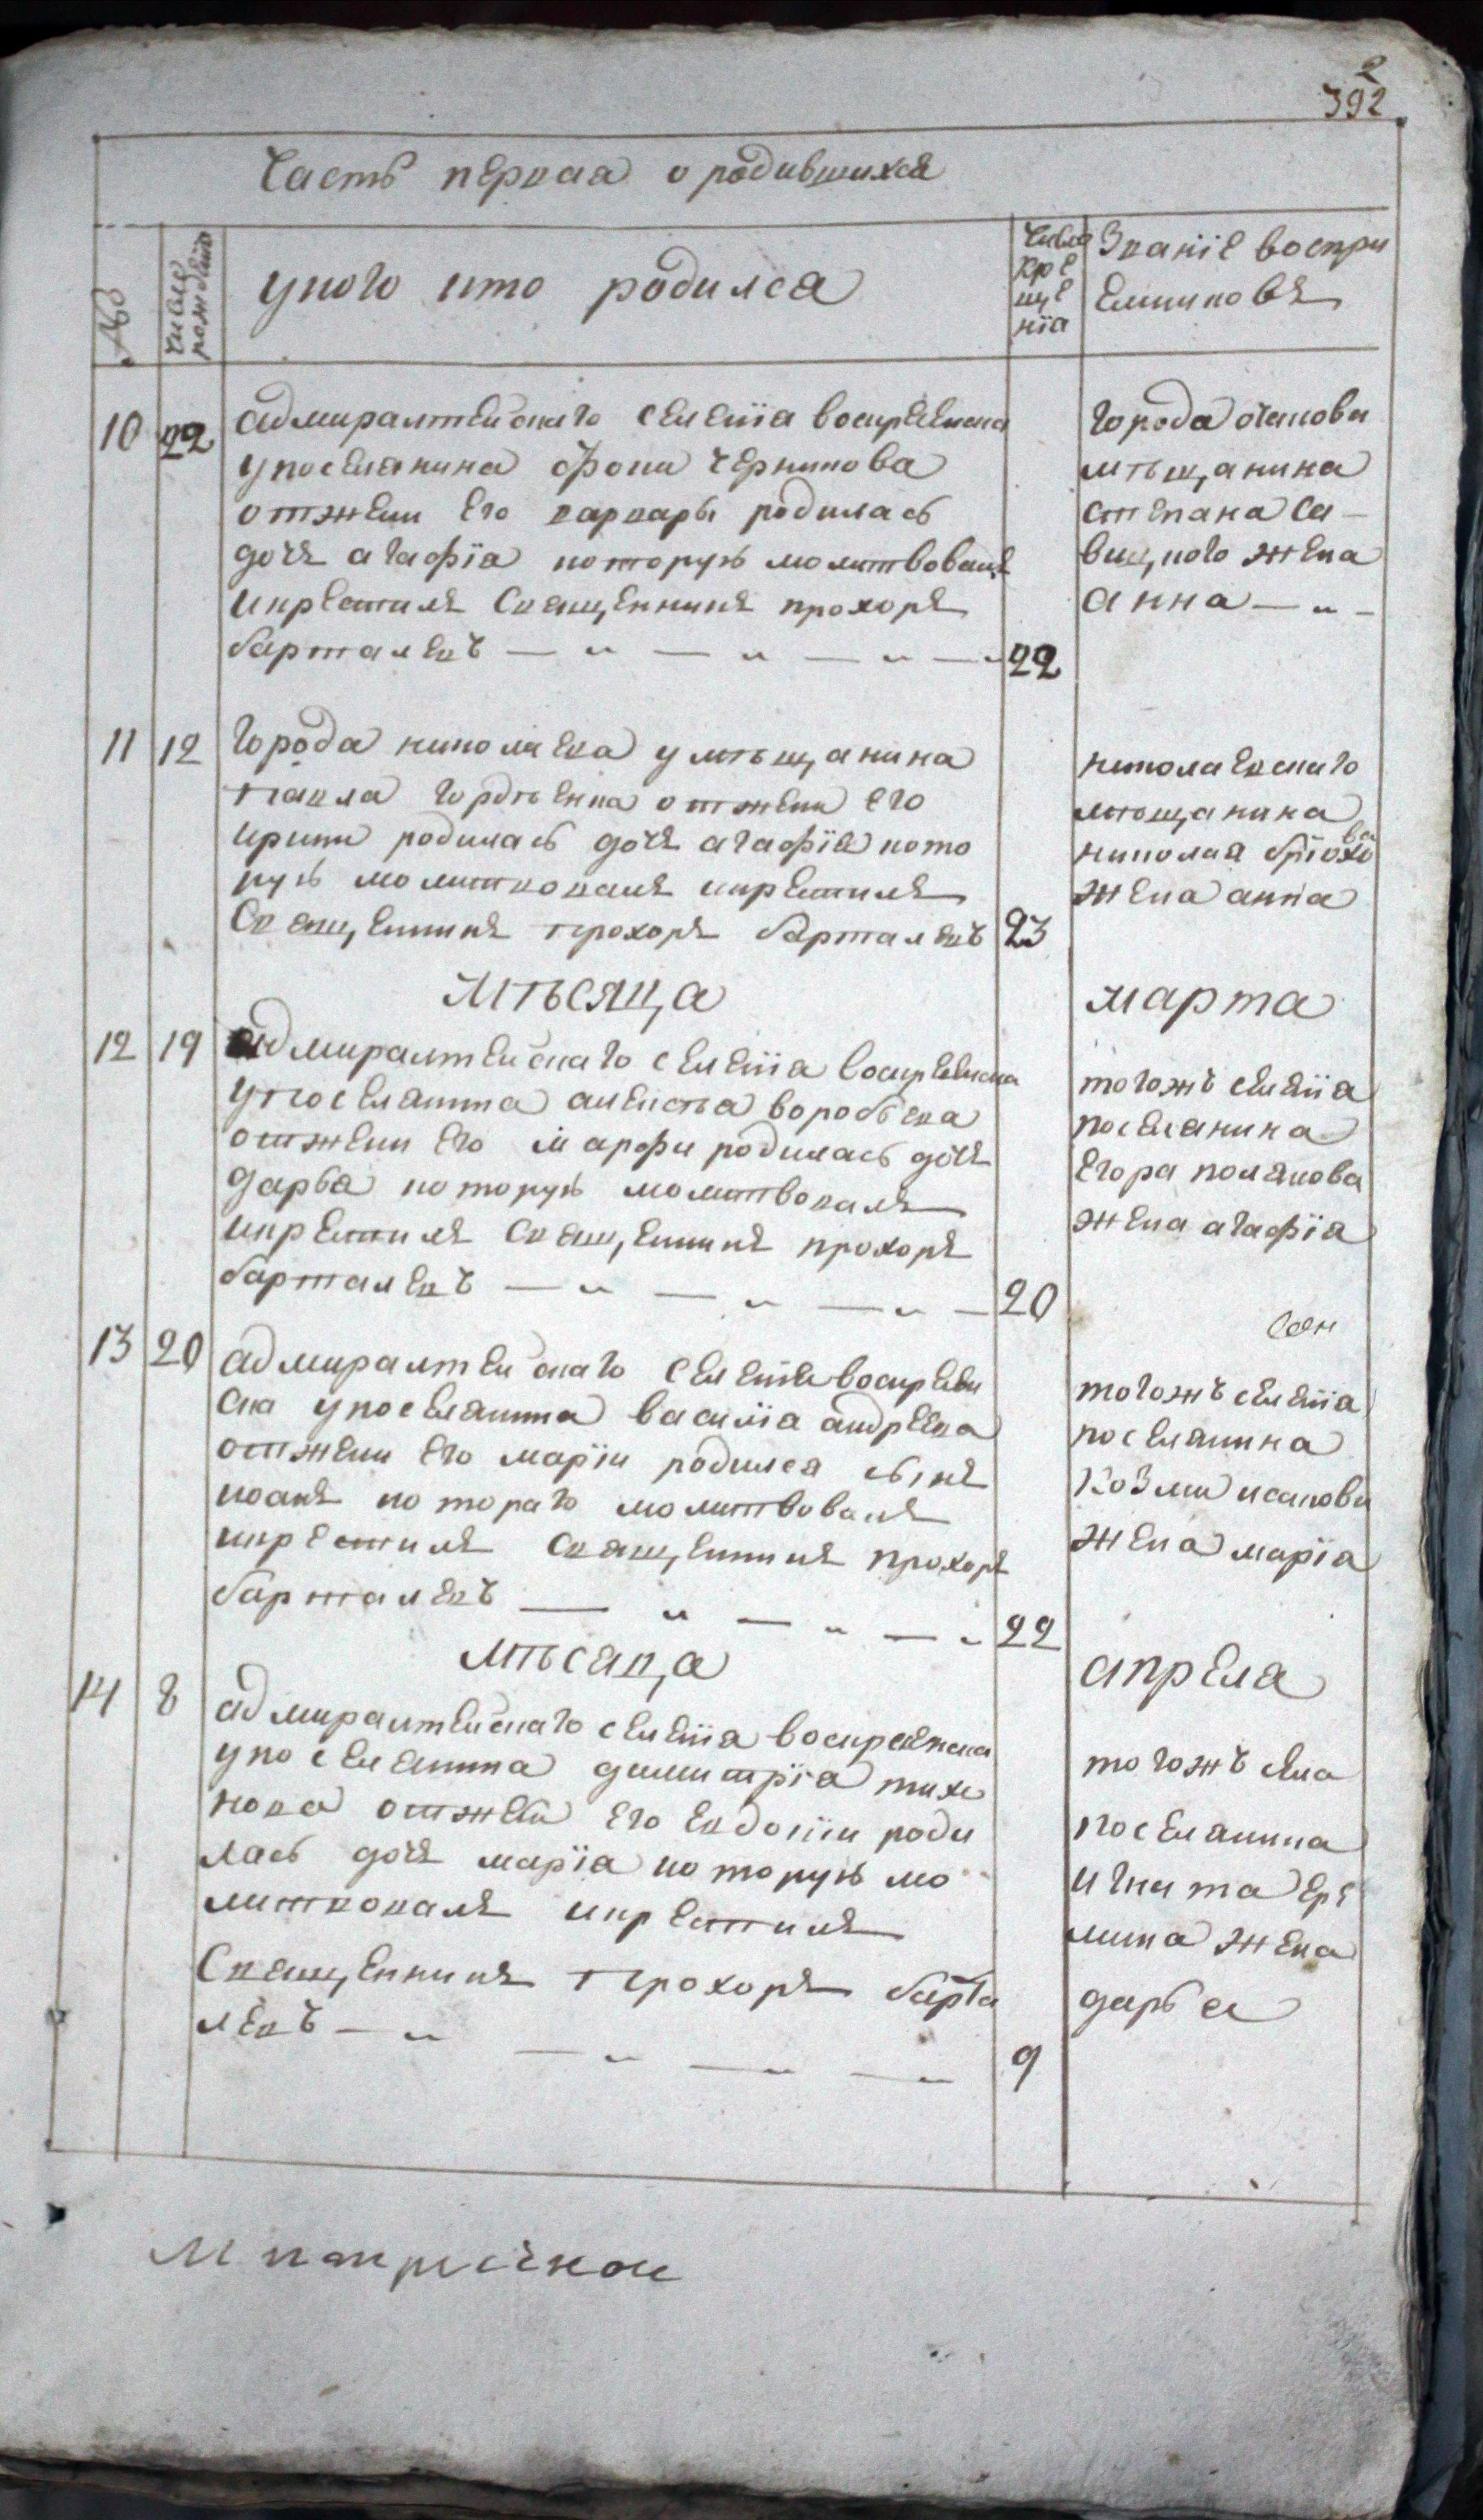 2
392
Часть первая о родившихся
№
число рождения
у кого кто родился
Число
кре
ще
нія
Званіе воспри
емниковъ
10 22 адмиралтейскаго селенія воскресенска
у поселянина Фоки черникова
от жени его варвары родилась
дочь агафія которую молитвовалъ
и крестилъ Священникъ прохоръ
барталевъ — „ — „ — „ — „ 22
города очакова
мѣщанина
степана са—
вицкого жена
анна — „ —
11 12 города николаева у мѣщанина
павла гордѣенка от жени его
ирини родилась дочь агафія кото
рую молитвовалъ и крестилъ
Священникъ прохоръ барталевъ 23
николаевскаго
мѣщанина
николая брюхо
ва
жена анна
мѣсяца марта
12 19 адмиралтейскаго селенія воскресенска
у поселянина алексѣя воробьева
от жени его марфи родилась дочь
дарья которую молитвовалъ
и крестилъ Священникъ прохоръ
барталевъ — „ — „ — „ — 20
тогожъ селенія
поселянина
егора полякова
жена агафія
13 20 адмиралтейскаго селенія воскресен
ска у поселянина василія андреева
от жени его маріи родился сынъ
иоанъ котораго молитвовалъ
и крестилъ Священникъ прохоръ
барталевъ — „ — „ — „ 22
тогожъ селенія
поселянина
Козми исакова
жена марія
мѣсяца апреля
14 8 адмиралтейскаго селенія воскресенска
у поселянина димитрія тихо
нова от жени его евдокіи роди
лась дочь марія которую мо
литвовалъ и крестилъ
Священникъ прохоръ барта
левъ — „ — „ — „ — „ 9
тогожъ села
поселянина
игната ере
мина жена
дарья